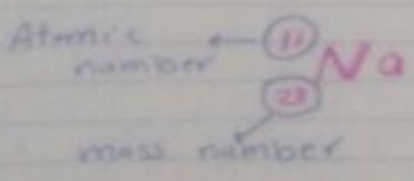 Atomic
number
11
Na
23
mass number